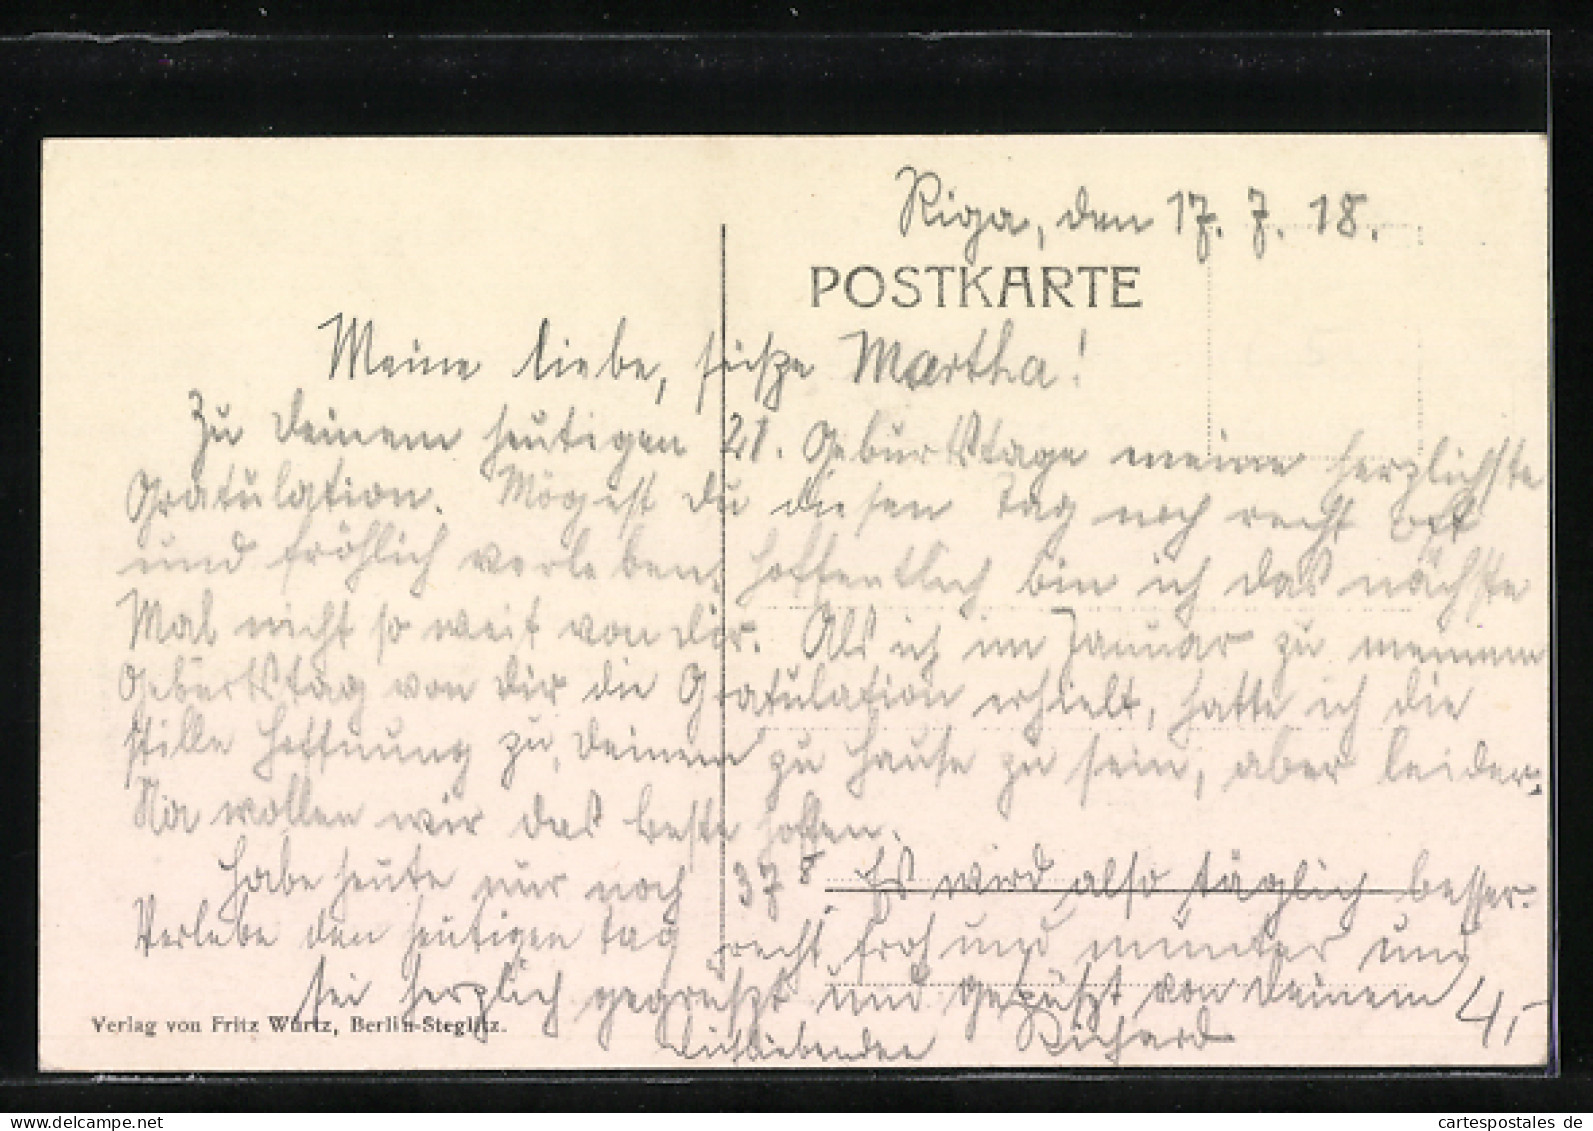 Riga, den 17. 7. 18.
POSTKARTE
Meine liebe, süsze Martha!
Zu Deinem heutigen 21. Geburtstage meine herzlichste
Gratulation. Mögest Du diesen Tag noch recht oft
und fröhlich verleben, hoffentlich bin ich das nächste
Mal nicht so weit von dir. Als ich im Januar zu meinem
Geburtstag von Dir die Gratulation erhielt, hatte ich die
stille Hoffnung zu Deinem zu Hause zu sein, aber leider.
Na wollen wir das beste hoffen.
Habe heute nur noch 37⁸. Es wird also täglich besser.
Verlebe den heutigen Tag recht froh und munter und
sei herzlich gegrüszt und geküszt von Deinem
Dichliebenden Richard
4,-
Verlag von Fritz Würtz, Berlin-Steglitz.
cartespostales de